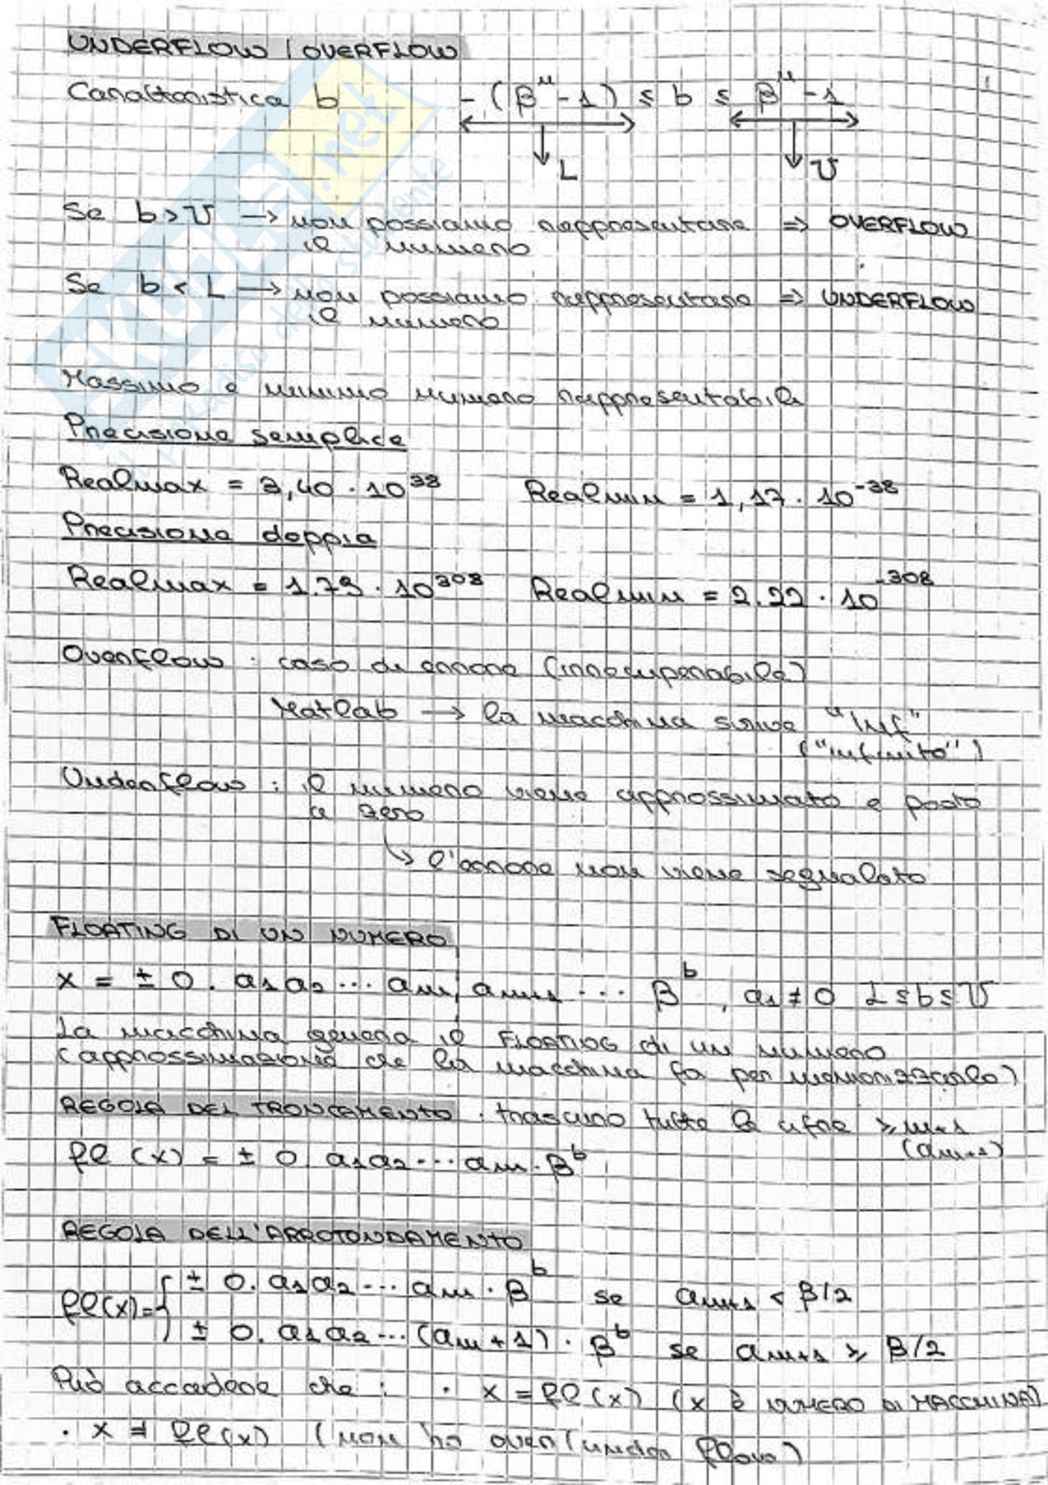 UNDERFLOW / OVERFLOW
Caratteristica b - (β^u - 1) ≤ b ≤ β^u - 1
L U
Se b > U → non possiamo rappresentare ⇒ OVERFLOW
il numero
Se b < L → non possiamo rappresentare ⇒ UNDERFLOW
il numero
Massimo e minimo numero rappresentabile
Precisione semplice
Realmax = 3,40 · 10^38 Realmin = 1,17 · 10^-38
Precisione doppia
Realmax = 1.79 · 10^308 Realmin = 2.22 · 10^-308
Overflow : caso di errore (irrecuperabile)
Matlab → la macchina scrive "Inf"
("infinito")
Underflow : il numero viene approssimato e posto
a zero
↳ l'errore non viene segnalato
FLOATING DI UN NUMERO
x = ± 0. a1 a2 ... am, am+1 ... β^b , a1 ≠ 0 L ≤ b ≤ U
La macchina genera il FLOATING di un numero
(approssimazione che la macchina fa per memorizzarlo)
REGOLA DEL TRONCAMENTO : trascuro tutte le cifre ≥ m+1
(am+1)
fl (x) = ± 0. a1 a2 ... am · β^b
REGOLA DELL'ARROTONDAMENTO
fl(x) = { ± 0. a1 a2 ... am · β^b se am+1 < β/2
± 0. a1 a2 ... (am + 1) · β^b se am+1 ≥ β/2
Può accadere che : · x = fl(x) (x è NUMERO DI MACCHINA)
· x ≠ fl(x) (non ho over/under flow)
SKUOLA.net